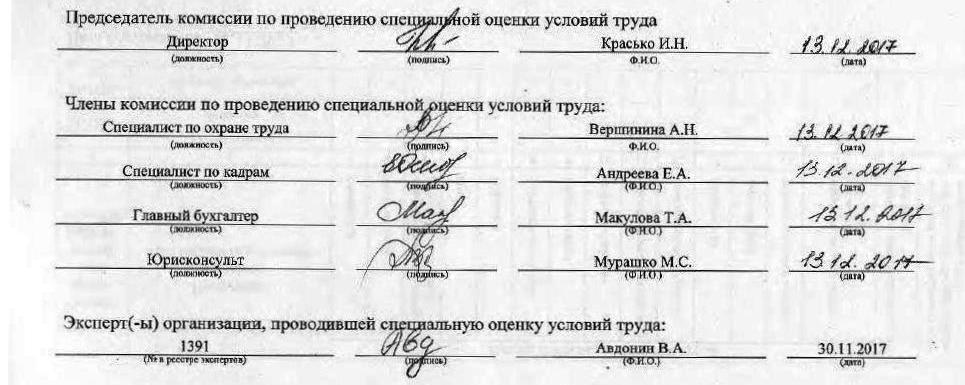 Председатель комиссии по проведению специальной оценки условий труда
Директор Красько И.Н. 13.12.2017
(должность) (подпись) Ф.И.О. (дата)
Члены комиссии по проведению специальной оценки условий труда:
Специалист по охране труда Вершинина А.Н. 13.12.2017
(должность) (подпись) Ф.И.О. (дата)
Специалист по кадрам Андреева Е.А. 13.12.2017
(должность) (подпись) (Ф.И.О.) (дата)
Главный бухгалтер Макулова Т.А. 13.12.2017
(должность) (подпись) (Ф.И.О.) (дата)
Юрисконсульт Мурашко М.С. 13.12.2017
(должность) (подпись) (Ф.И.О.) (дата)
Эксперт(-ы) организации, проводившей специальную оценку условий труда:
1391 Авд Авдонин В.А. 30.11.2017
(№ в реестре экспертов) (подпись) (Ф.И.О.) (дата)